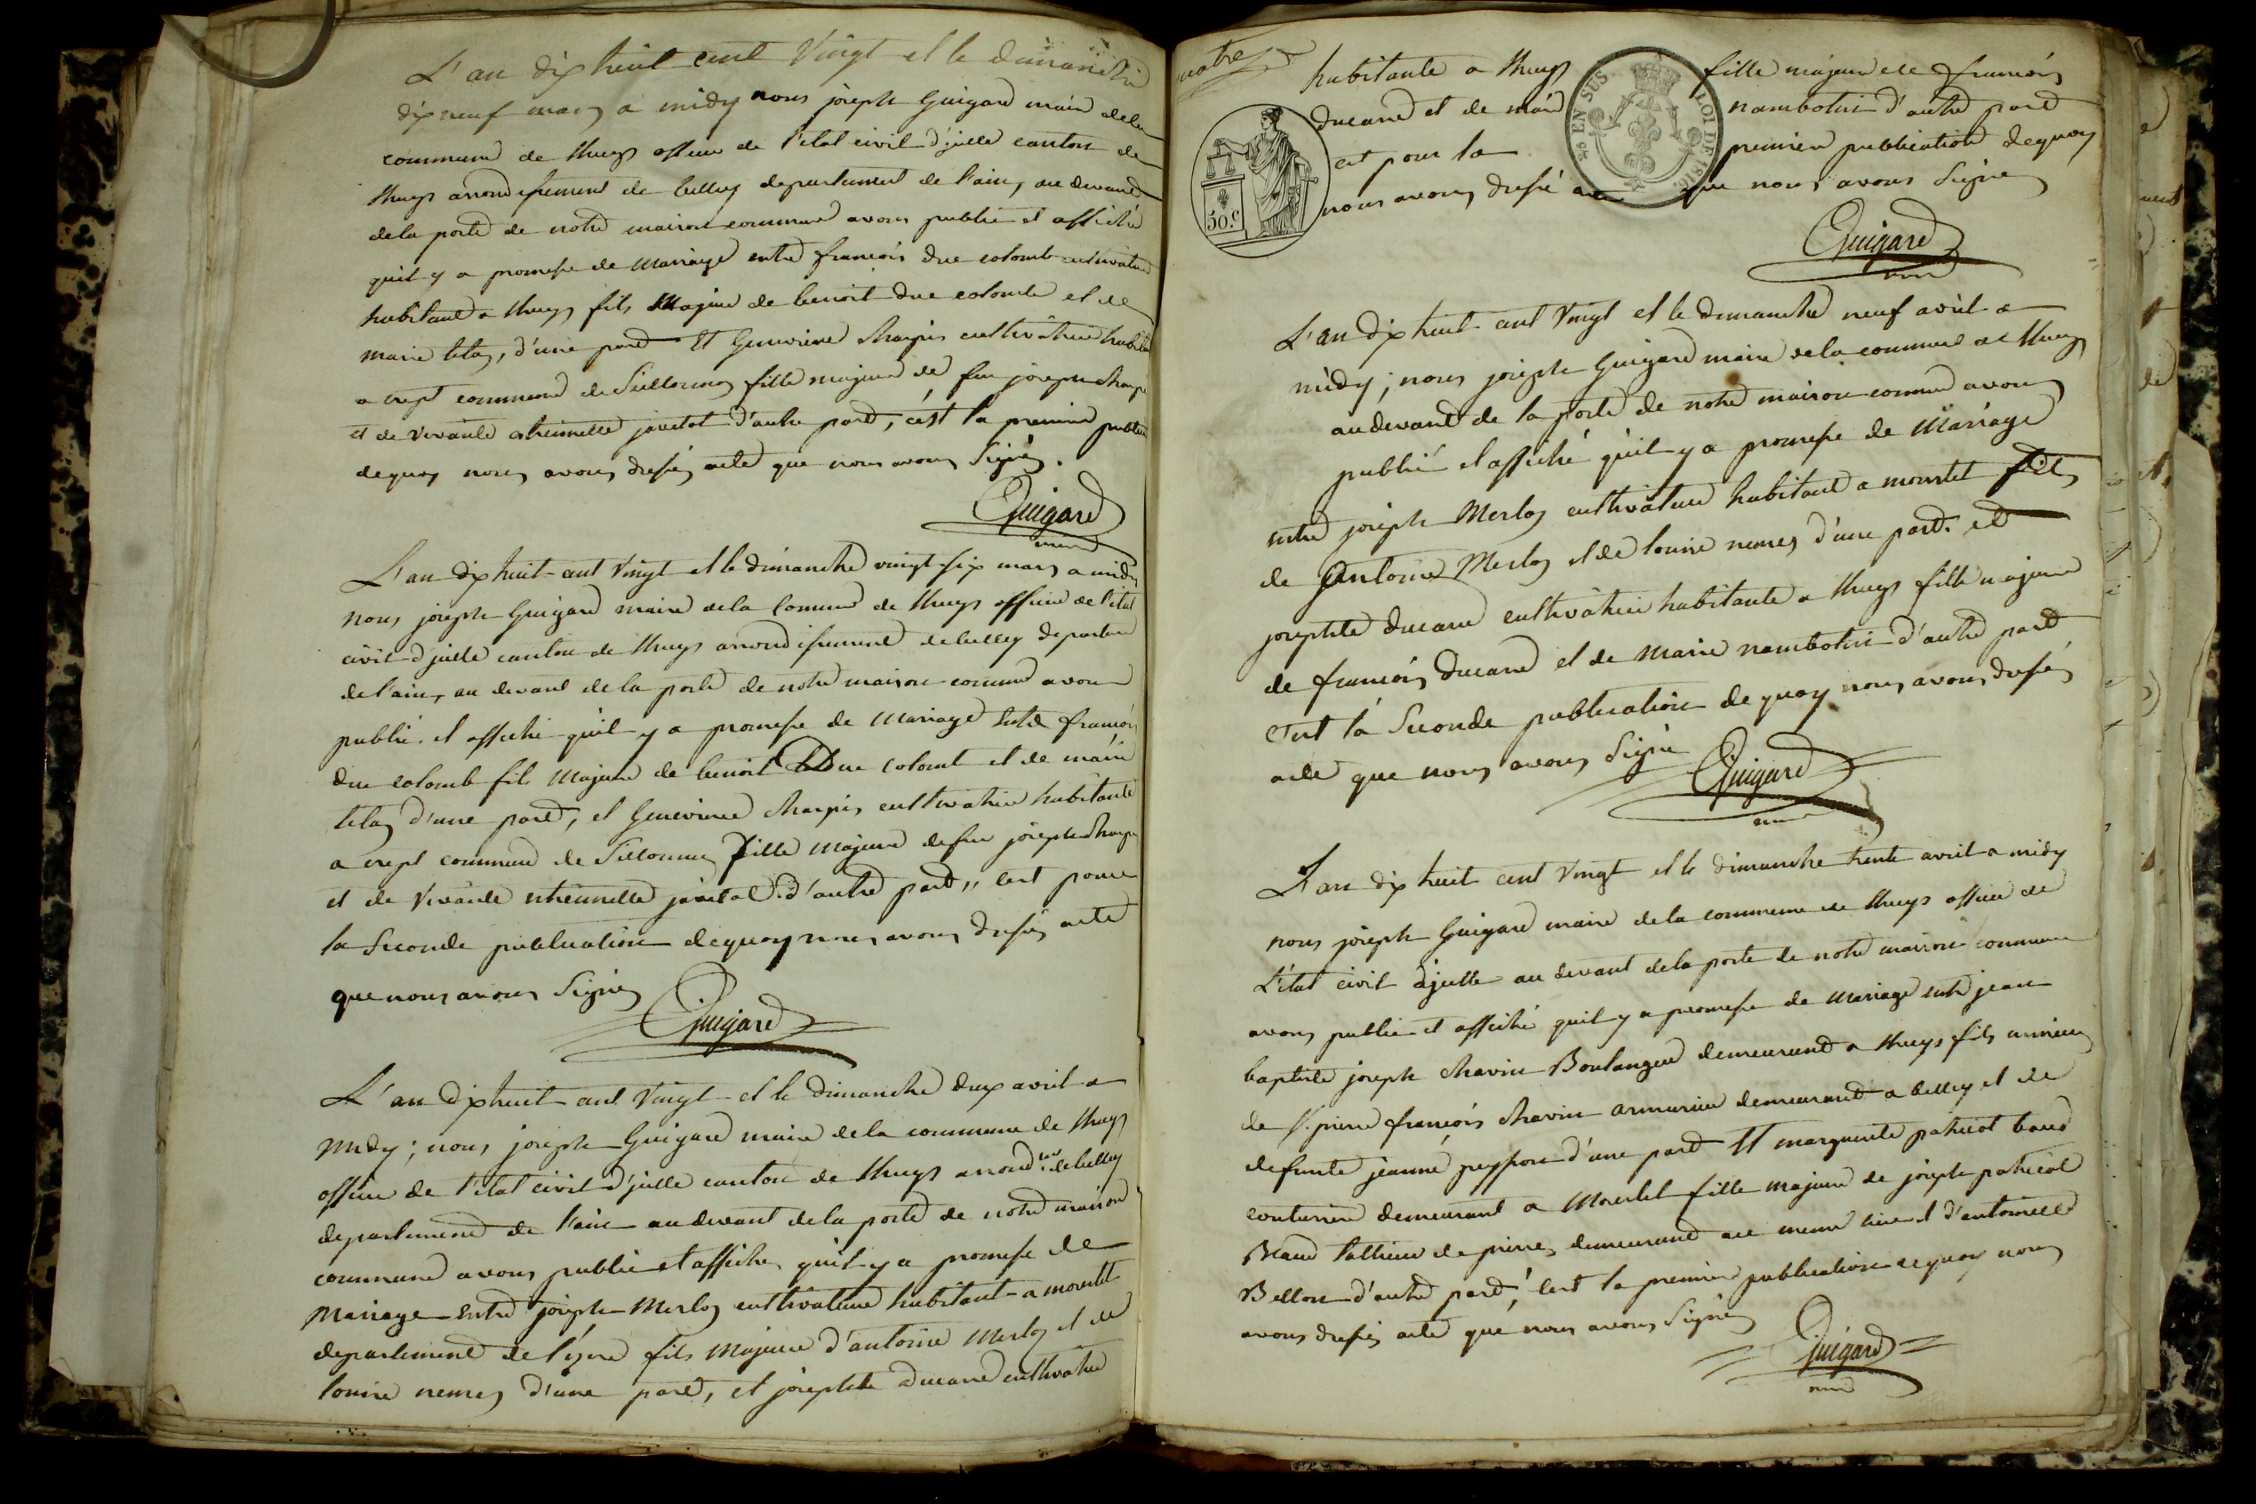 L'an dix huit cent vingt et le dimanche
dix neuf mars a midy nous joseph Guigard maire dela
commune de lhuys officier de l'etat civil d'jcelle canton de
lhuys arrondissement de belley departement de l'ain, au devant
dela porte de notre maison commune avons publié et affiché
quil y a promesse de mariage entre francois duc colomb cultivateur
habitant a lhuys fils majeur de benoit duc colomb et de
marie , d'une part Et Genevieve charpin cultivatrice habitante
a crept commune de Seillonnas fille majeure de feu joseph charpin
et de vivante d'autre part, c'est la premiere publication
dequoy nous avons dressés acte que nous avons Signés.
Guigard
maire
L'an dix huit cent vingt et le dimanche vingt six mars a midy
nous joseph Guigard maire dela Commune de lhuys officier de l'etat
civil d'jcelle canton de lhuys arrondissement de belley departement
de l'ain, au devant de la porte de notre maison commune avons
publié et affiché quil y a promesse de mariage entre francois
duc colomb fils majeur de benoit Duc colomb et de marie
d'une part, et Genevieve charpin cultivatrice habitante
a crept commune de Seillonnas fille majeure de feu joseph charpin
et de vivante d'autre part,, cest pour
la Seconde publication dequoy nous avons dressés acte
que nous avons Signés
Guigard
L'an dix huit cent vingt et le dimanche deux avril a
midy; nous joseph Guigard maire dela commune de lhuys
officier de l'etat civil d'jcelle canton de lhuys arrond.ent de belley
departement de l'ain au devant dela porte de notre maison
commune avons publié et affiché quil y a promesse de
mariage entre joseph Merloz cultivateur habitant a morestel
departement de l'izere fils majeur d'antoine Merloz et de
louise nemoz d'une part, et josephte ducarre cultivatrice
quatre
habitante a lhuys fille majeure de francois
ducarre et de marie nambotin d'autre part
cet pour la premiere publication dequoy
nous avons dressé acte que nous avons Signé
50.c
EN SUS.
LOI DE 1816.
Guigard
maire
L'an dix huit cent vingt et le dimanche neuf avril a
midy; nous joseph Guigard maire dela commune de lhuys
au devant de la porte de notre maison commune avons
publié et affiché qu'il y a promesse de mariage
entre joseph Merloz cultivateur habitant a morestel fils
de antoine Merloz et de louise nemoz d'une part. et
josephte ducarre cultivatrice habitante a lhuys fille majeure
de francois ducarre et de marie nambotin d'autre part
c'est la Seconde publication de quoy nous avons dressés
acte que nous avons Signé
Guigard
maire
L'an dix huit cent vingt et le dimanche trente avril a midy
nous joseph Guigard maire dela commune de lhuys officier de
L'etat civil d'jcelle au devant dela porte de notre maison commune
avons publié et affiché quil y a promesse de mariage entre jean
baptiste joseph chavin Boulanger demeurant a lhuys fils mineur
de s.r pierre francois chavin armurier demeurant a belley et de
defunte jeanne d'une part Et marguerite patricot baud
couturiere demeurant a Morestel fille majeure de joseph patricot
Beaud tailleur de pierres demeurant au meme lieu et d'antoinette
Bellon d'autre part, cest la premiere publication dequoy nous
avons dressés acte que nous avons Signés
Guigard
maire